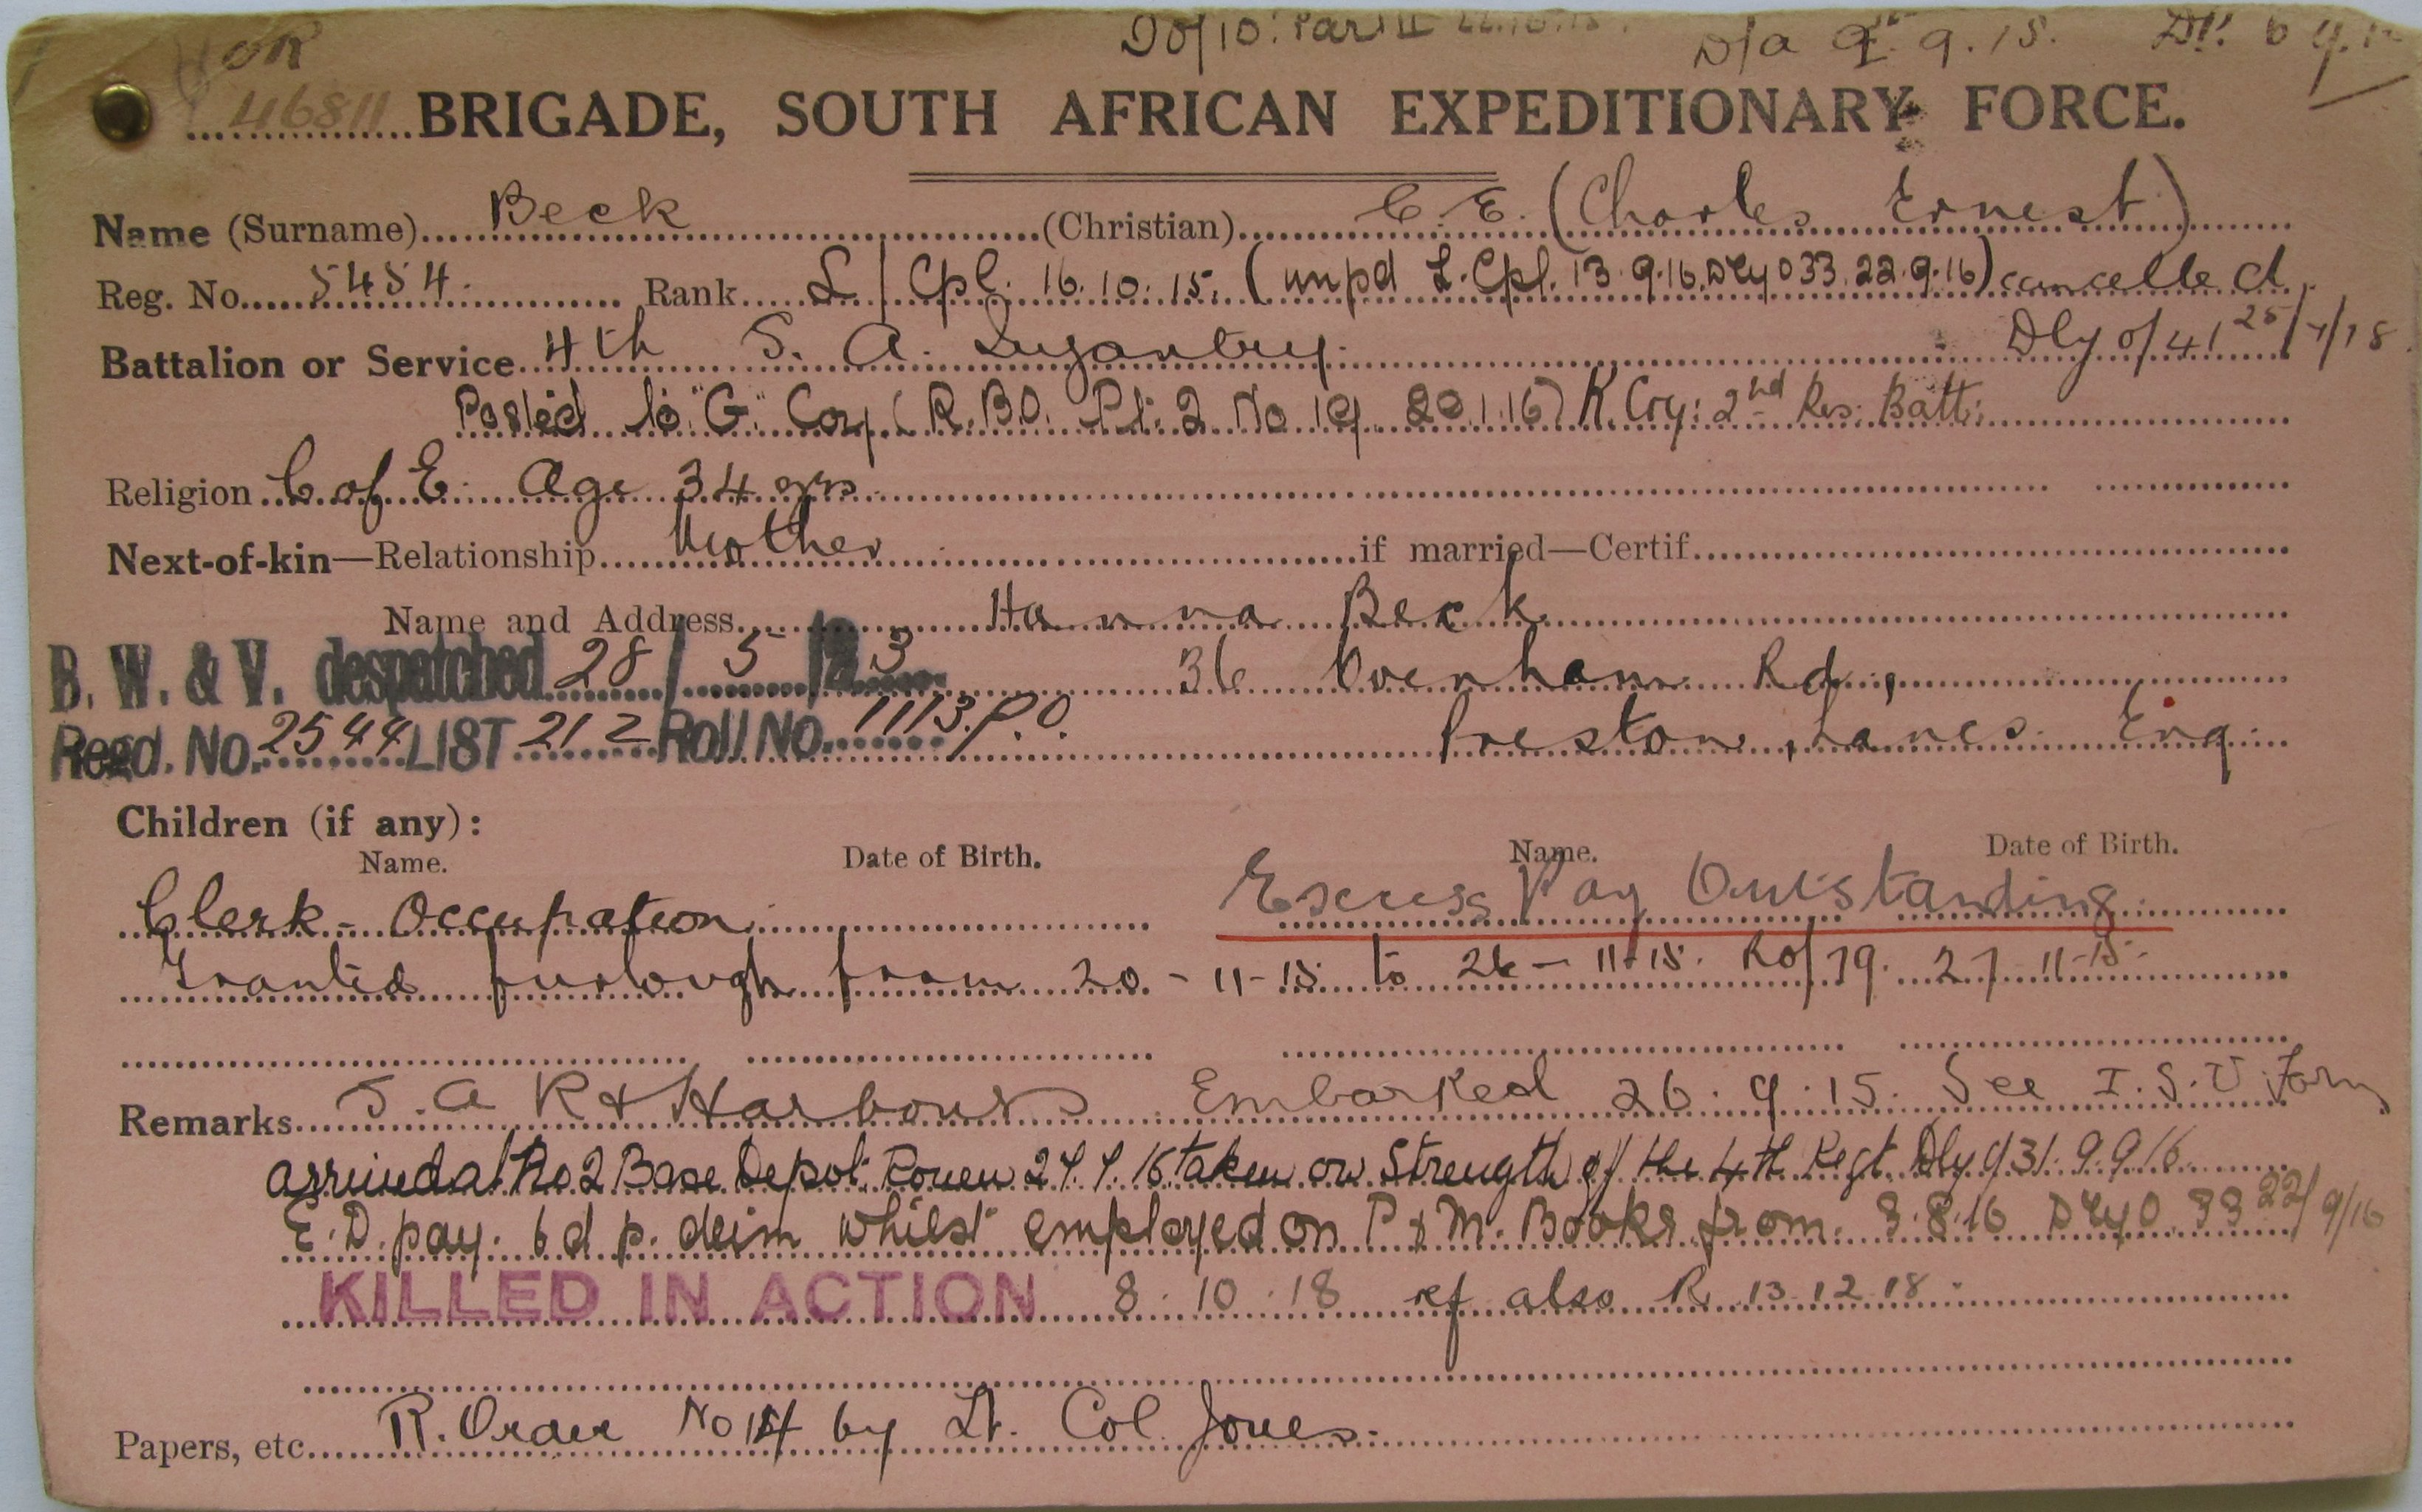 OR DO/10. Part II 22.10.15. D/a 9.9.15. 
46811 BRIGADE, SOUTH AFRICAN EXPEDITIONARY FORCE.
Name (Surname) Beck (Christian) C. E. (Charles Ernest)
Reg. No. 5454. Rank L/Cpl. 16.10.15. (unpd L.Cpl. 13.9.16. Dly O 33. 22.9.16) cancelled
Battalion or Service 4th S. A. Infantry. Dly o/41 25/7/18.
Posted to "G" Coy (R.B.O. Pt. 2 No 19 20.1.16) K. Coy: 2nd Res. Batt:
Religion C of E. Age 34 yrs.
Next-of-kin—Relationship Mother if married—Certif.
Name and Address Hanna Beck
B. W. & V. despatched 28/5/23 36 Ovenham Rd,
Regd. No. 2544 LIST 212 Roll No. 1113. P.O. Preston, Lancs. Eng.
Children (if any):
Name. Date of Birth. Name. Date of Birth.
Clerk - Occupation. Excess Pay Outstanding
Granted furlough from 20-11-15 to 26-11-15. Ro/79. 27-11-15.
Remarks S. A R & Harbours Embarked 26.9.15. See I.S.U Form
arrived at No 2 Base Depot. Rouen 27.7.16 taken on Strength of the 4th Regt. Dly O 31. 9.9.16
E. D. pay. 6d p. deim whilst employed on P & M. Books from. 3.8.16 Dly O 33 22/9/16
KILLED IN ACTION 8.10.18 ref also R. 13.12.18.
Papers, etc. R. Order No 14 by Lt. Col. Jones.